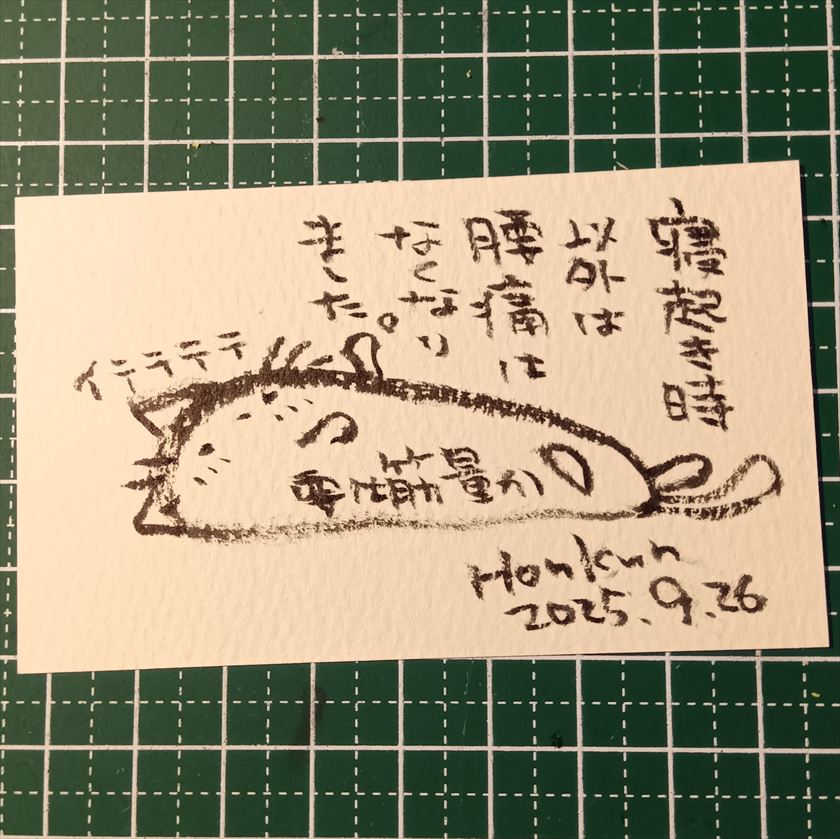 寝起き時
以外は
腰痛は
なくなり
ました。
イテテテテ
要は筋量か
Honkun
2025.9.26